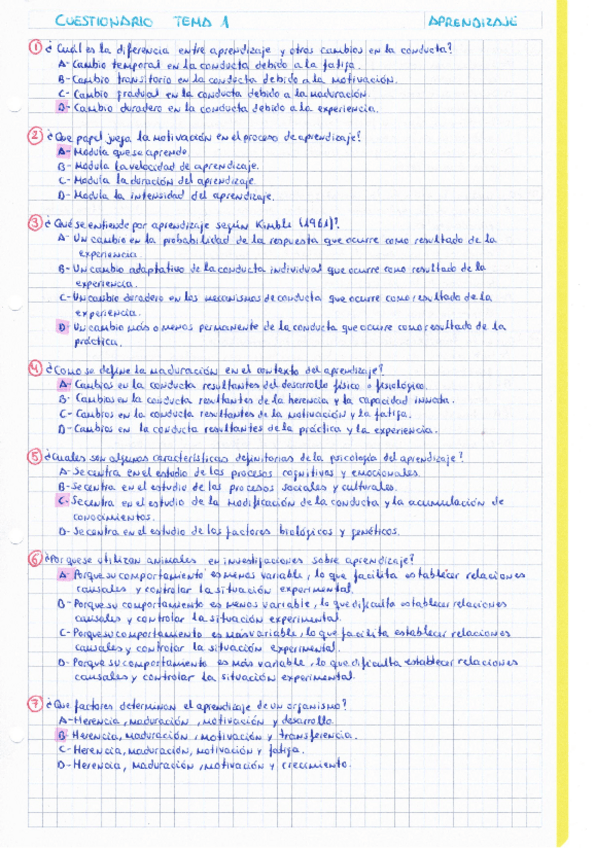 CUESTIONARIO TEMA 1 APRENDIZAJE
1 ¿Cuál es la diferencia entre aprendizaje y otros cambios en la conducta?
A- Cambio temporal en la conducta debido a la fatiga.
B- Cambio transitorio en la conducta debido a la motivación.
C- Cambio gradual en la conducta debido a la maduración.
D- Cambio duradero en la conducta debido a la experiencia.
2 ¿Que papel juega la motivación en el proceso de aprendizaje?
A- Modula que se aprende
B- Modula la velocidad de aprendizaje.
C- Modula la duración del aprendizaje
D- Modula la intensidad del aprendizaje.
3 ¿Qué se entiende por aprendizaje según Kimble (1961)?
A- Un cambio en la probabilidad de la respuesta que ocurre como resultado de la
experiencia
B- Un cambio adaptativo de la conducta individual que ocurre como resultado de la
experiencia.
C- Un cambio duradero en los mecanismos de conducta que ocurre como resultado de la
experiencia.
D- Un cambio más o menos permanente de la conducta que ocurre como resultado de la
práctica.
4 ¿Como se define la maduración en el contexto del aprendizaje?
A- Cambios en la conducta resultantes del desarrollo físico o fisiológico.
B- Cambios en la conducta resultantes de la herencia y la capacidad innata.
C- Cambios en la conducta resultantes de la motivación y la fatiga.
D- Cambios en la conducta resultantes de la práctica y la experiencia.
5 ¿Cuales son algunas características definitorias de la psicología del aprendizaje?
A- Se centra en el estudio de los procesos cognitivos y emocionales.
B- Se centra en el estudio de los procesos sociales y culturales.
C- Se centra en el estudio de la modificación de la conducta y la acumulación de
conocimientos.
D- Se centra en el estudio de los factores biológicos y genéticos.
6 ¿Por que se utilizan animales en investigaciones sobre aprendizaje?
A- Porque su comportamiento es menos variable, lo que facilita establecer relaciones
causales y controlar la situación experimental.
B- Porque su comportamiento es menos variable, lo que dificulta establecer relaciones
causales y controlar la situación experimental.
C- Porque su comportamiento es más variable, lo que facilita establecer relaciones
causales y controlar la situación experimental.
D- Porque su comportamiento es más variable, lo que dificulta establecer relaciones
causales y controlar la situación experimental.
7 ¿Que factores determinan el aprendizaje de un organismo?
A- Herencia, maduración, motivación y desarrollo.
B- Herencia, maduración, motivación y transferencia.
C- Herencia, maduración, motivación y fatiga.
D- Herencia, maduración, motivación y crecimiento.